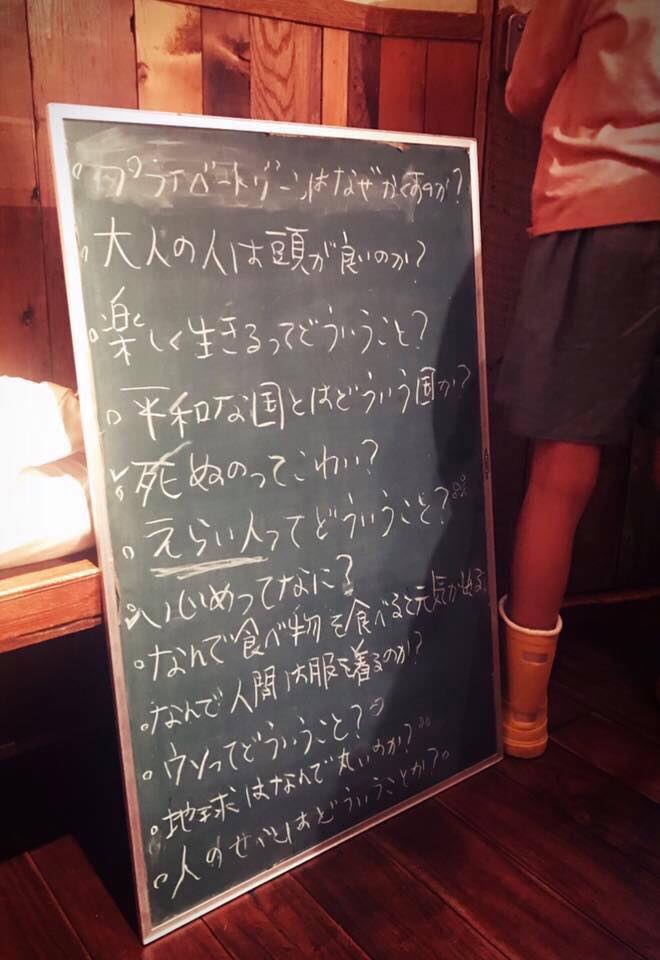 。プライベートゾーンはなぜかくすのか?
。大人の人は頭が良いのか?
。楽しく生きるってどういうこと?
。平和な国とはどういう国か?
。死ぬのってこわい?
。えらい人ってどういうこと?
。いじめってなに?
。なんで食べ物を食べると元気がでる?
。なんで人間は服を着るのか?
。ウソってどういうこと?
。地球はなんで丸いのか?
。人のせべつはどういうことか?